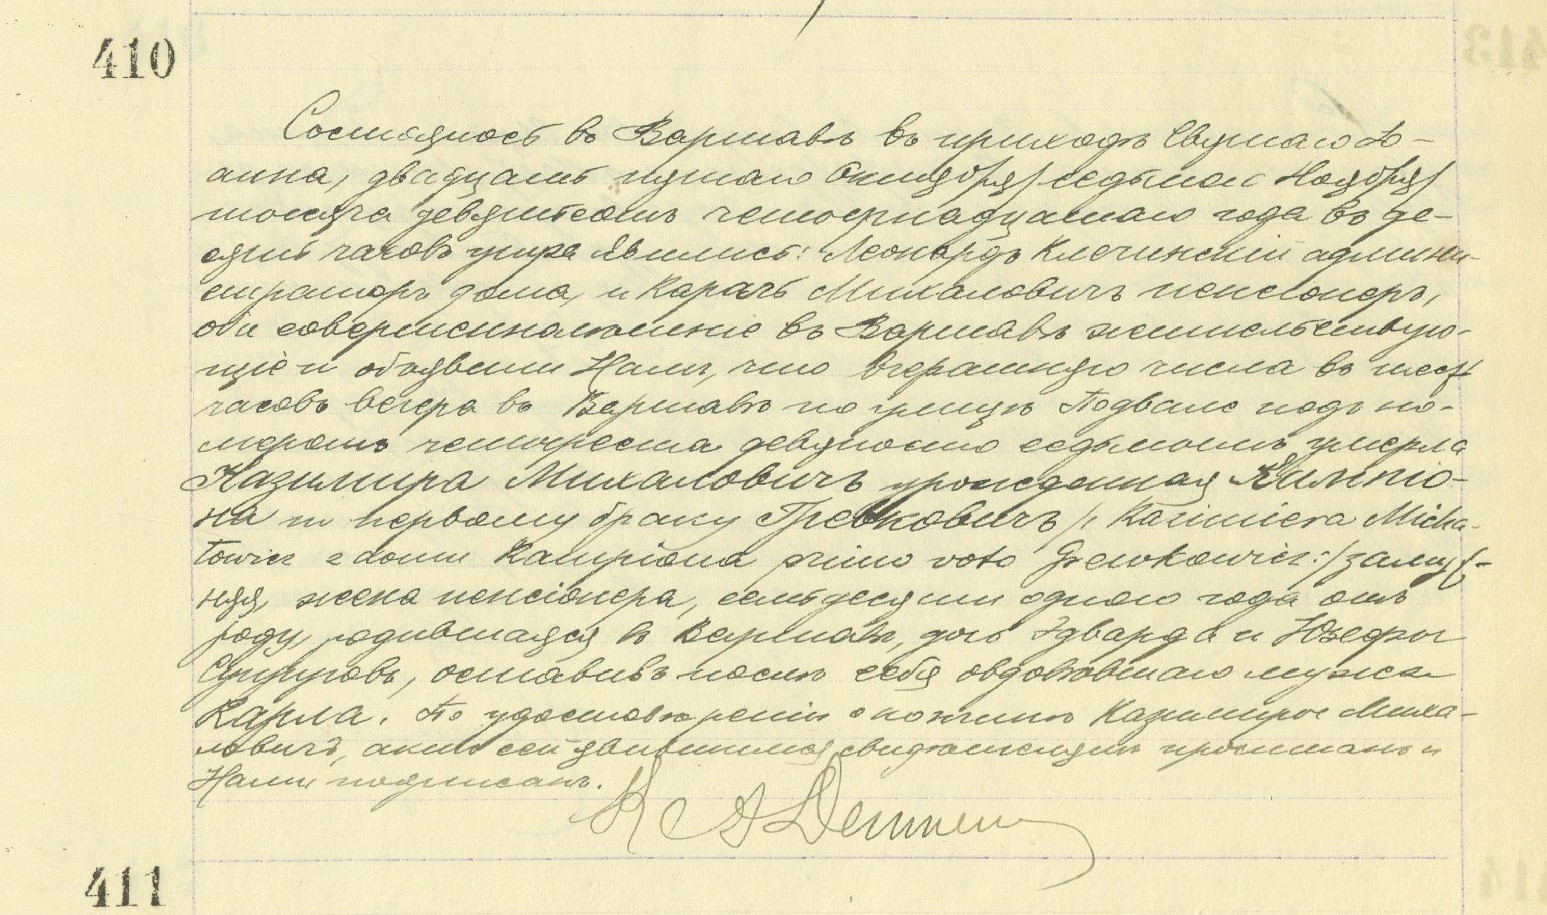 410
Состоялось въ Варшавѣ въ приходѣ Святаго Іо-
анна, двадцать пятаго Октября /седьмого Ноября/
тысяча девятьсотъ четырнадцатаго года въ де-
сять часовъ утра. Явились: Леонардъ Клечинскій админи-
страторъ дома, и Карлъ Михаловичъ пенсіонеръ,
оба совершеннолѣтніе въ Варшавѣ жительствую-
щіе и объявили Намъ, что вчерашняго числа въ шесть
часовъ вечера въ Варшавѣ по улицѣ Подвале подъ но-
меромъ четыреста девяносто седьмымъ умерла
Казимира Михаловичъ урожденная Кампіо-
на по первому браку Гревковичъ /: Kazimiera Micha-
łowicz z domu Kampiona primo voto Grewkowicz :/ замуж-
няя, жена пенсіонера, семьдесяти одного года отъ
роду, родившаяся въ Варшавѣ, дочь Эдварда и Юзефы
супруговъ, оставивъ послѣ себя овдовѣвшаго мужа
Карла. По удостовѣреніи о кончинѣ Казимиры Миха-
ловичъ, актъ сей явившимся свидѣтелямъ прочитанъ и
Нами подписанъ.
411